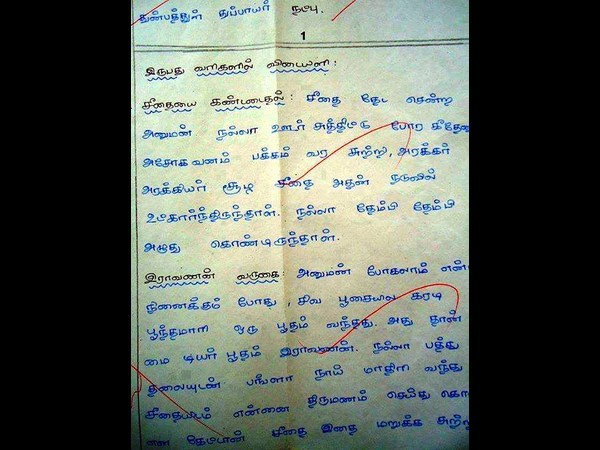 துன்பத்துள் துப்பாயார் நட்பு.
1
இருபது வரிகளில் விடையளி :
சீதையை கண்டடைதல் : சீதை தேட சென்ற
அனுமன் நல்லா ஊர் சுத்திட்டு போர
அசோகவனம் பக்கம் வர சுற்றி, அரக்கர்
அரக்கியர் சூழ சீதை அதன் நடுவில்
உட்கார்ந்திருந்தாள். நல்லா தேம்பி தேம்பி
அழுது கொண்டிருந்தாள்.
இராவணன் வருகை : அனுமன் போகலாம்
நினைக்தம் போது, சிவ பூசையில கரடி
பூந்தமாரி ஒரு பூதம் வந்தது. அது தான்
மை டியர் பூதம் இராவணன். நல்லா பத்து
தலையுடன் பங்ளா நாய் மாதிரி வந்து
சீதையிடம் என்னை திருமணம் செய்து
என சீதை இதை மறுக்க